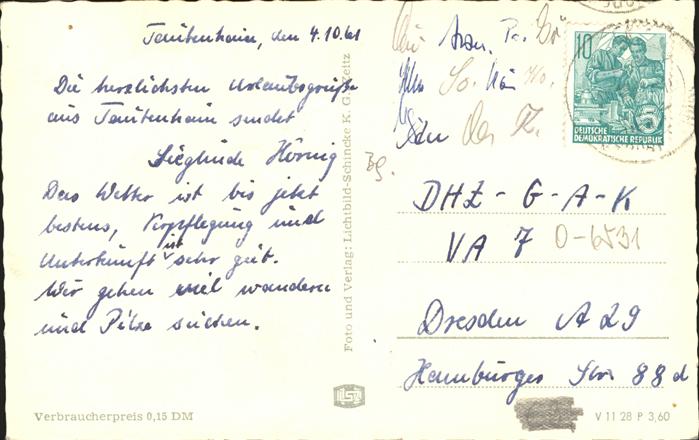 Tautenhain, den 4.10.61
Die herzlichsten Urlaubsgrüße
aus Tautenhain sendet
Sieglinde Hörnig
Das Wetter ist bis jetzt
bestens, Verpflegung und
Unterkunft ist sehr gut.
Wir gehen viel wandern
und Pilze suchen.
Verbraucherpreis 0,15 DM
Foto und Verlag: Lichtbild-Schincke K. G., Zeitz
10
DEUTSCHE
DEMOKRATISCHE REPUBLIK
5
An
DHZ - G - A - K
VA 7 0-6531
Dresden A 29
Hamburger Str. 88 d
V 11 28 P 3,60